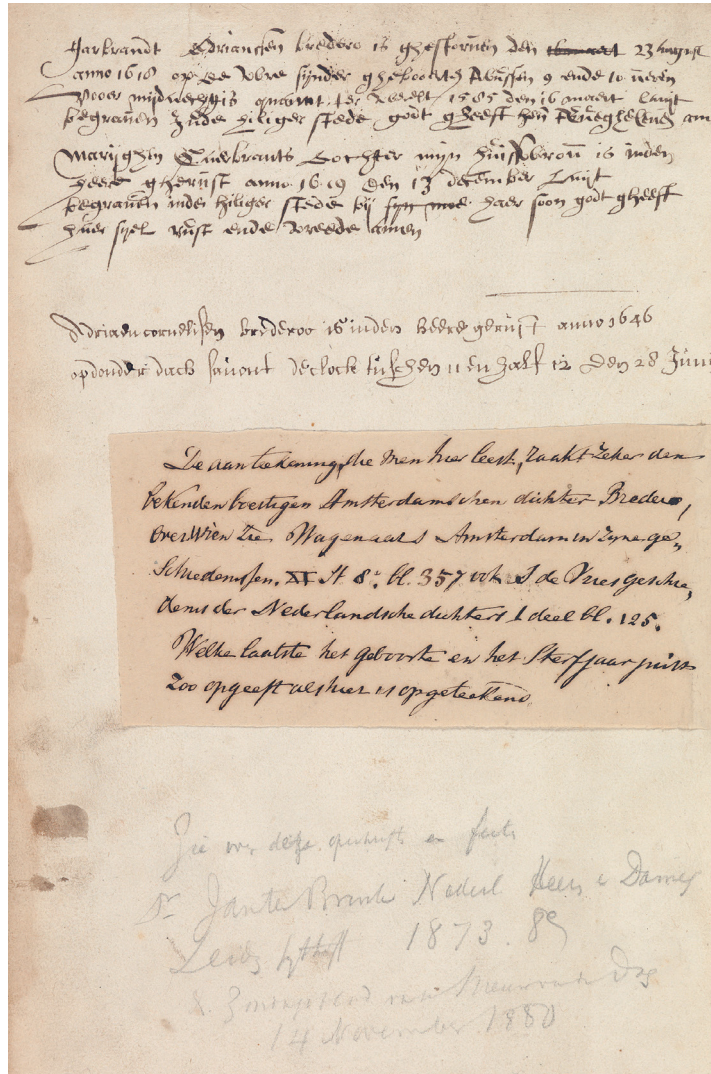 Garbrandt Adriaensen bredero is ghestorven den 23 august
anno 1618 op de ure synder gheboorte tussen 9 ende 10 ueren
voor 1585 den 16 maert
begraven inde hiliger stede godt gheeft hem
Marijghen Gerbrants dochter mijn huisvrou is inden
heere gherust anno 1619 den 13 december
begraven inder hiliger stede bij haer soon godt gheeft
haer siel rust ende vreede amen
Adriaen cornelissen brederoo is inden heere gerust anno 1646
op donderdach savont de clock tusschen 11 en half 12 den 28 Juni
De aanteekening, die men hier leest, raakt zeker den
bekenden boertigen Amsterdamschen dichter Bredero,
over wien zie Wagenaars Amsterdam in zyne ge„
schiedenissen. XI St 8°. bl. 357 ook J de Vries geschie„
denis der Nederlandsche dichters 1 deel bl. 125.
Welke laatste het geboorte en het sterfjaar juist
zoo opgeeft als hier is opgeteekend.
Zie over deze en
Dr Jan ten Brink Nederl Heer en Dames
Leid Sythoff 1873. 89
14 November 1880